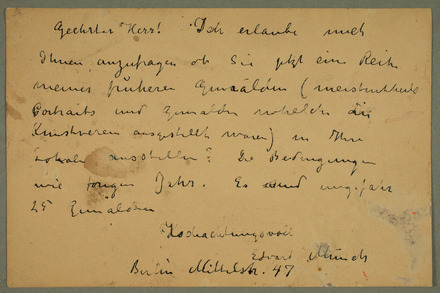 Geehrter Herr! Ich erlaube mich
Ihnen anzufragen ob Sie jetzt eine Reihe
meiner früheren Gemälden (
Portraits und Gemälden welche
Kunstverein ausgestellt waren) in Ihre
Lokalen ausstellen? Die Bedingungen
wie Jahr. Es sind ungefähr
25 Gemälden
Hochachtungsvoll
Edvard Munch
Berlin Mittelstr. 47